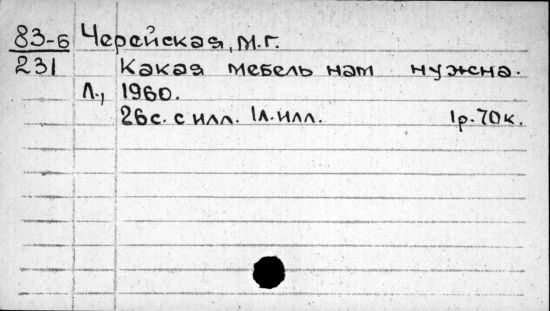 83-6 Черейская, М.Г.
231 Какая мебель нам нужна.
Л., 1960.
26с. с илл. 1л. илл. 1р. 70к.